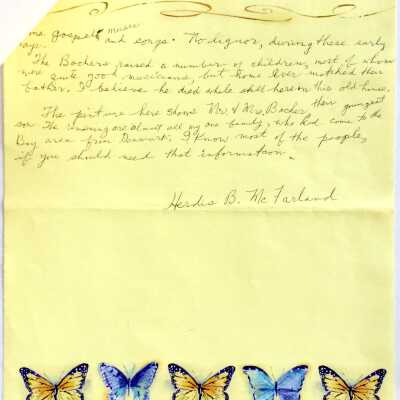 some gospel music and songs. No liquor, during these early
days.
The Bachers raised a number of children, most of whom
were quite good musicians, but none ever matched their
father. I believe he died while still here in this old house.
The picture here shows Mr. & Mrs. Bacher, their youngest
son. The remaining are almost all one family, who had come to the
Bay area from Denmark. I know most of the people,
if you should need that information.
Herdis B. McFarland